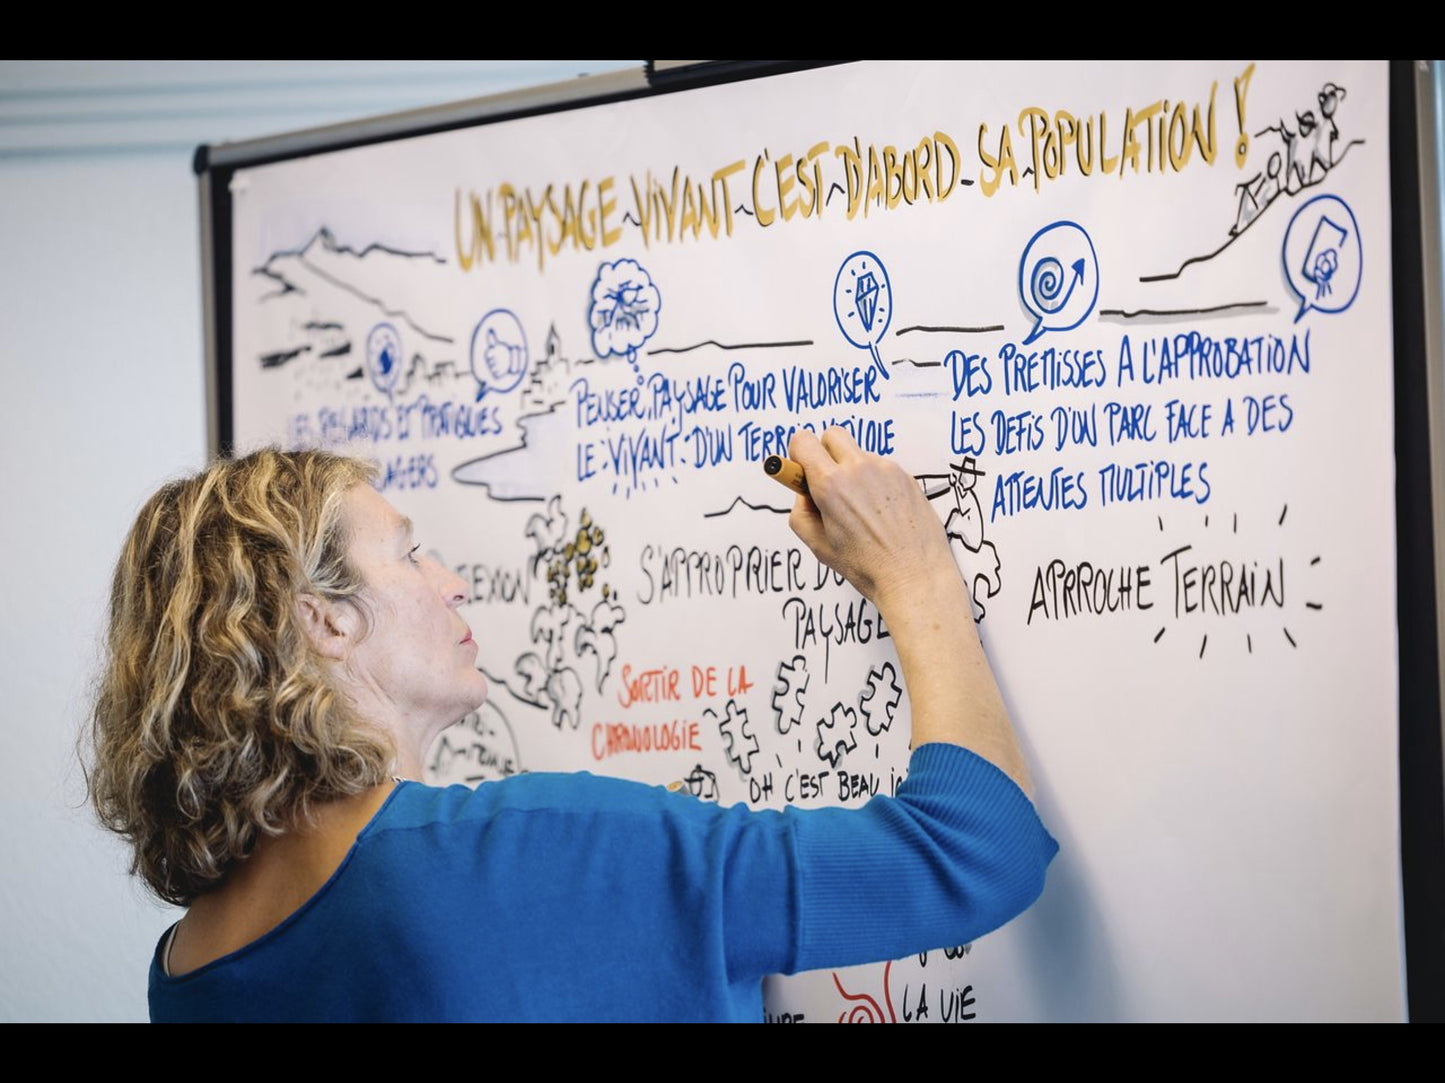 UN PAYSAGE VIVANT C'EST D'ABORD SA POPULATION !
LES REGARDS ET PRATIQUES
PENSER PAYSAGE POUR VALORISER
LE VIVANT D'UN TERROIR VITICOLE
DES PREMISSES A L'APPROBATION
LES DEFIS D'UN PARC FACE A DES
ATTENTES MULTIPLES
S'APPROPRIER DU
PAYSAGE
APRROCHE TERRAIN
SORTIR DE LA
CHRONOLOGIE
OH C'EST BEAU ici
LA VIE